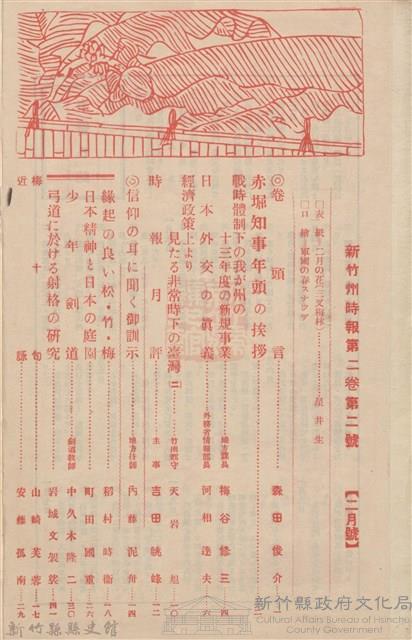 新竹州時報第二卷第二號 【二月號】
□表紙…二月の花（三叉梅林）…星井生
□口繪…軍國の春スナツプ
◎卷頭言…森田俊介…一
赤堀知事年頭の挨拶…二
戰時體制下の我が州の
十三年度の新規事業…地方課長 梅谷修三…四
日本外交の眞義…外務省情報部長 河相達夫…六
經濟政策上より
見たる非常時下の臺灣（二）…竹南郡守 天岩旭…一〇
時報月評…主事 吉田眺峰…一二
◎信仰の耳に聞く御訓示…地方技師 內藤泥舟…一四
緣起の良い松・竹・梅…稻村時衞…一八
日本精神と日本の庭園…町田國重…二六
少年劍道…劍道敎師 中久木隆二…三〇
弓道に於ける射格の研究…岩城文袈裟…四一
梅十句…山崎芙蓉…一七
近詠…安藤孤南…二九
新竹縣縣史館
新竹縣政府文化局
Cultural Affairs Bureau of Hsinchu